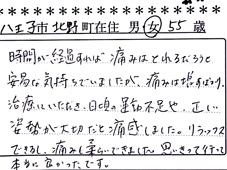 八王子市北野町在住 男・女 55歳
時間が経過すれば痛みはとれるだろうと
安易な気持ちでいましたが、痛みは増すばかり。
治療にいただき、日頃の運動不足や、正しい
姿勢が大切だと痛感しました。リラックス
できるし、痛みも柔らいできました。思いきって行って
本当に良かったです。